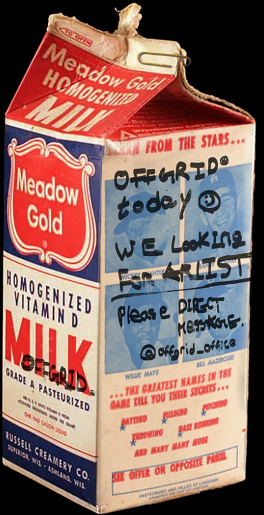 TO OPEN
Meadow Gold
HOMOGENIZED
MILK
Meadow
Gold
HOMOGENIZED
VITAMIN D
MILK
OFFGRID.
GRADE A PASTEURIZED
ONE HALF GALLON LIQUID
RUSSELL CREAMERY CO.
SUPERIOR, WIS. - ASHLAND, WIS.
FROM THE STARS...
OFFGRID®
today
WE Looking
For ARTIST
Please DIRECT
MESSAGE.
@offgrid_office
WILLIE MAYS
BILL MAZEROSKI
...THE GREATEST NAMES IN THE
GAME TELL YOU THEIR SECRETS...
BATTING FIELDING PITCHING
THROWING BASE RUNNING
AND MANY MANY MORE
SEE OFFER ON OPPOSITE PANEL